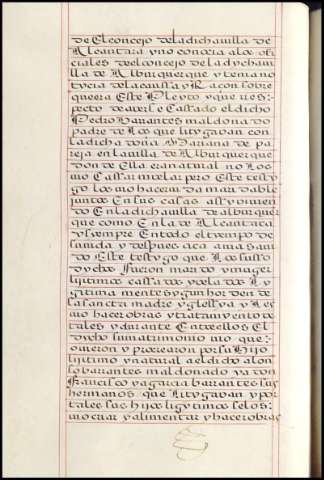 de El concejo de la dicha villa de
Alcantara y no conocia a los ofi
ciales de el concejo de la dycha vi
lla de Alburquerque y tenia no
tycia de la causa y Raçon sobre
que era Este Pleyto y que Res
pecto de averse Cassado el dicho
Pedro Barantes maldonado
padre de Los que lityGavan con
la dicha doña Mariana de pa
reja en la villa de Alburquerque
don de Ella era natural no Los
vio Cassar ni velar pero Este testy
go los vio hacer vida maridable
juntos En sus casas assy vivien
do En la dicha villa de alburquer
que como En la de Alcantara
y siempre En todo el tiempo de
su vida y despues aca avia savi
do Este testygo que Los susso
dychos fueron marido y muger
lijitimos cassados y velados le
gitima mente segun horden de
la sancta madre yglessya y Les
vio hacer obras y tratamyento de
tales y durante Entre ellos El
dycho su matrimonio vio que
ovieron y procrearon por su Hijo
lijitimo y natural a el dicho alon
so barantes maldonado ya don
Francisco y a garcia barantes sus
hermanos que LityGavan y por
tales sus hijos ligytimos se los
vio criar y alimentar y hacer obras